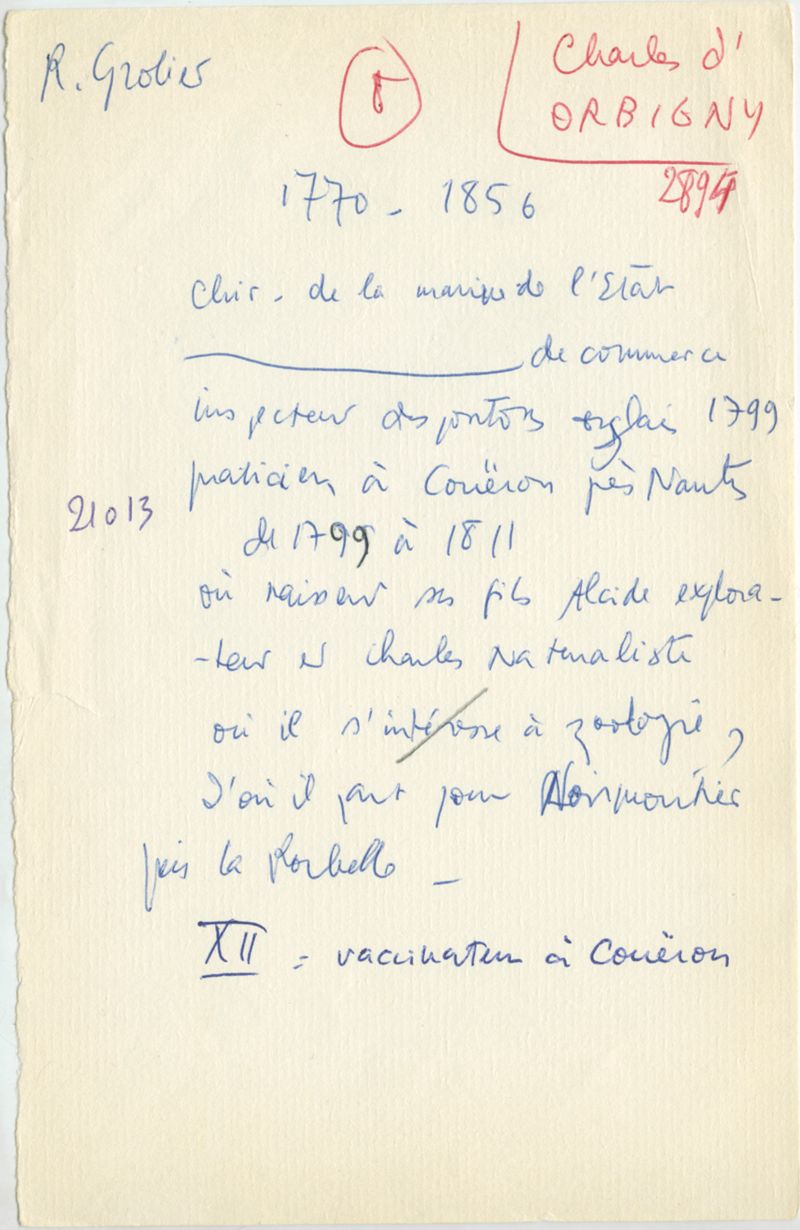 R. Grolier
8
Charles d'
ORBIGNY
2894
1770 - 1856
Chir. de la marine de l'Etat
de commerce
inspecteur des pontons anglais 1799
praticien à Couëron près Nantes
21013
de 1799 à 1811
où naissent ses fils Alcide explora-
-teur et Charles Naturaliste
où il s'intéresse à zoologie,
d'où il part pour Noirmoutier
puis la Rochelle -
XII = vaccinateur à Couëron